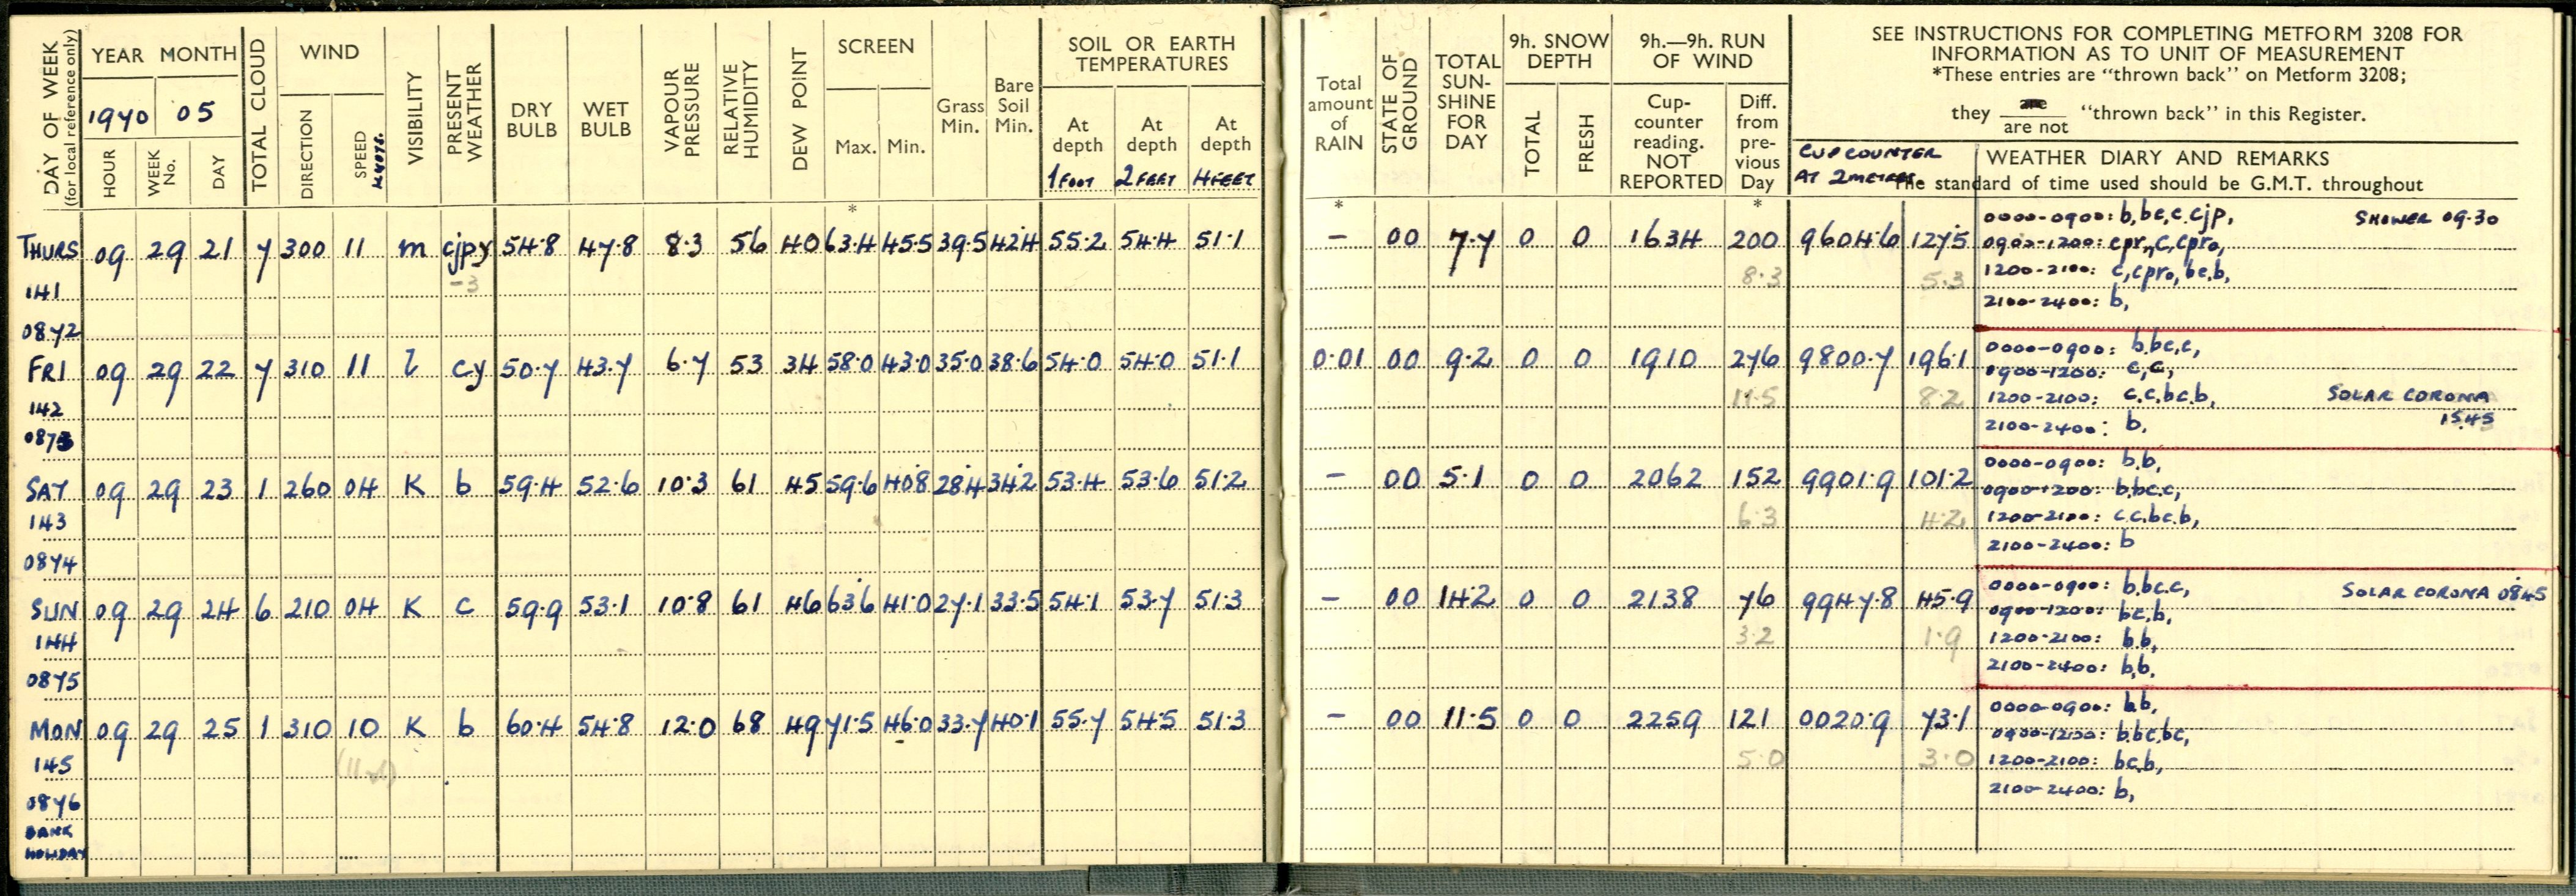 DAY OF WEEK
(for local reference only)
YEAR MONTH
1970 05
HOUR
WEEK No.
DAY
TOTAL CLOUD
WIND
DIRECTION
SPEED KNOTS.
VISIBILITY
PRESENT WEATHER
DRY BULB
WET BULB
VAPOUR PRESSURE
RELATIVE HUMIDITY
DEW POINT
SCREEN
Max. Min.
Grass Min.
Bare Soil Min.
SOIL OR EARTH TEMPERATURES
At depth 1 FOOT
At depth 2 FEET
At depth 4 FEET
Total amount of RAIN
STATE OF GROUND
TOTAL SUN-SHINE FOR DAY
9h. SNOW DEPTH
TOTAL
FRESH
9h.—9h. RUN OF WIND
Cup-counter reading. NOT REPORTED
Diff. from pre-vious Day
SEE INSTRUCTIONS FOR COMPLETING METFORM 3208 FOR
INFORMATION AS TO UNIT OF MEASUREMENT
*These entries are "thrown back" on Metform 3208;
they are / are not "thrown back" in this Register.
CUP COUNTER AT 2 METRES
WEATHER DIARY AND REMARKS
The standard of time used should be G.M.T. throughout
* * *
THURS 09 29 21 7 300 11 m cjpy 54.8 47.8 8.3 56 40 63.4 45.5 39.5 42.4 55.2 54.4 51.1 – 00 7.7 0 0 1634 200 9604.6 127.5
-3 8.3 5.3
141
0872
0000-0900: b,bc,c.cjp, SHOWER 09.30
0900-1200: cpr,,c,cpro,
1200-2100: c,cpro,bc,b,
2100-2400: b,
FRI 09 29 22 7 310 11 l cy 50.7 43.7 6.7 53 34 58.0 43.0 35.0 38.6 54.0 54.0 51.1 0.01 00 9.2 0 0 1910 276 9800.7 196.1
11.5 8.2
142
0873
0000-0900: b,bc,c,
0900-1200: c,c,
1200-2100: c.c,bc.b, SOLAR CORONA
2100-2400: b, 1545
SAT 09 29 23 1 260 04 K b 59.4 52.6 10.3 61 45 59.6 40.8 28.4 34.2 53.4 53.6 51.2 – 00 5.1 0 0 2062 152 9901.9 101.2
6.3 4.2
143
0874
0000-0900: b,b,
0900-1200: b,bc.c,
1200-2100: c.c.bc.b,
2100-2400: b
SUN 09 29 24 6 210 04 K c 59.9 53.1 10.8 61 46 63.6 41.0 27.1 33.5 54.1 53.7 51.3 – 00 14.2 0 0 2138 76 9947.8 45.9
3.2 1.9
144
0875
0000-0900: b,bc.c, SOLAR CORONA 0845
0900-1200: bc,b,
1200-2100: b,b,
2100-2400: b,b,
MON 09 29 25 1 310 10 K b 60.4 54.8 12.0 68 49 71.5 46.0 33.7 40.1 55.7 54.5 51.3 – 00 11.5 0 0 2259 121 0020.9 73.1
5.0 3.0
145
0876
BANK
HOLIDAY
0000-0900: b,b,
0900-1200: b,bc,bc,
1200-2100: bc,b,
2100-2400: b,